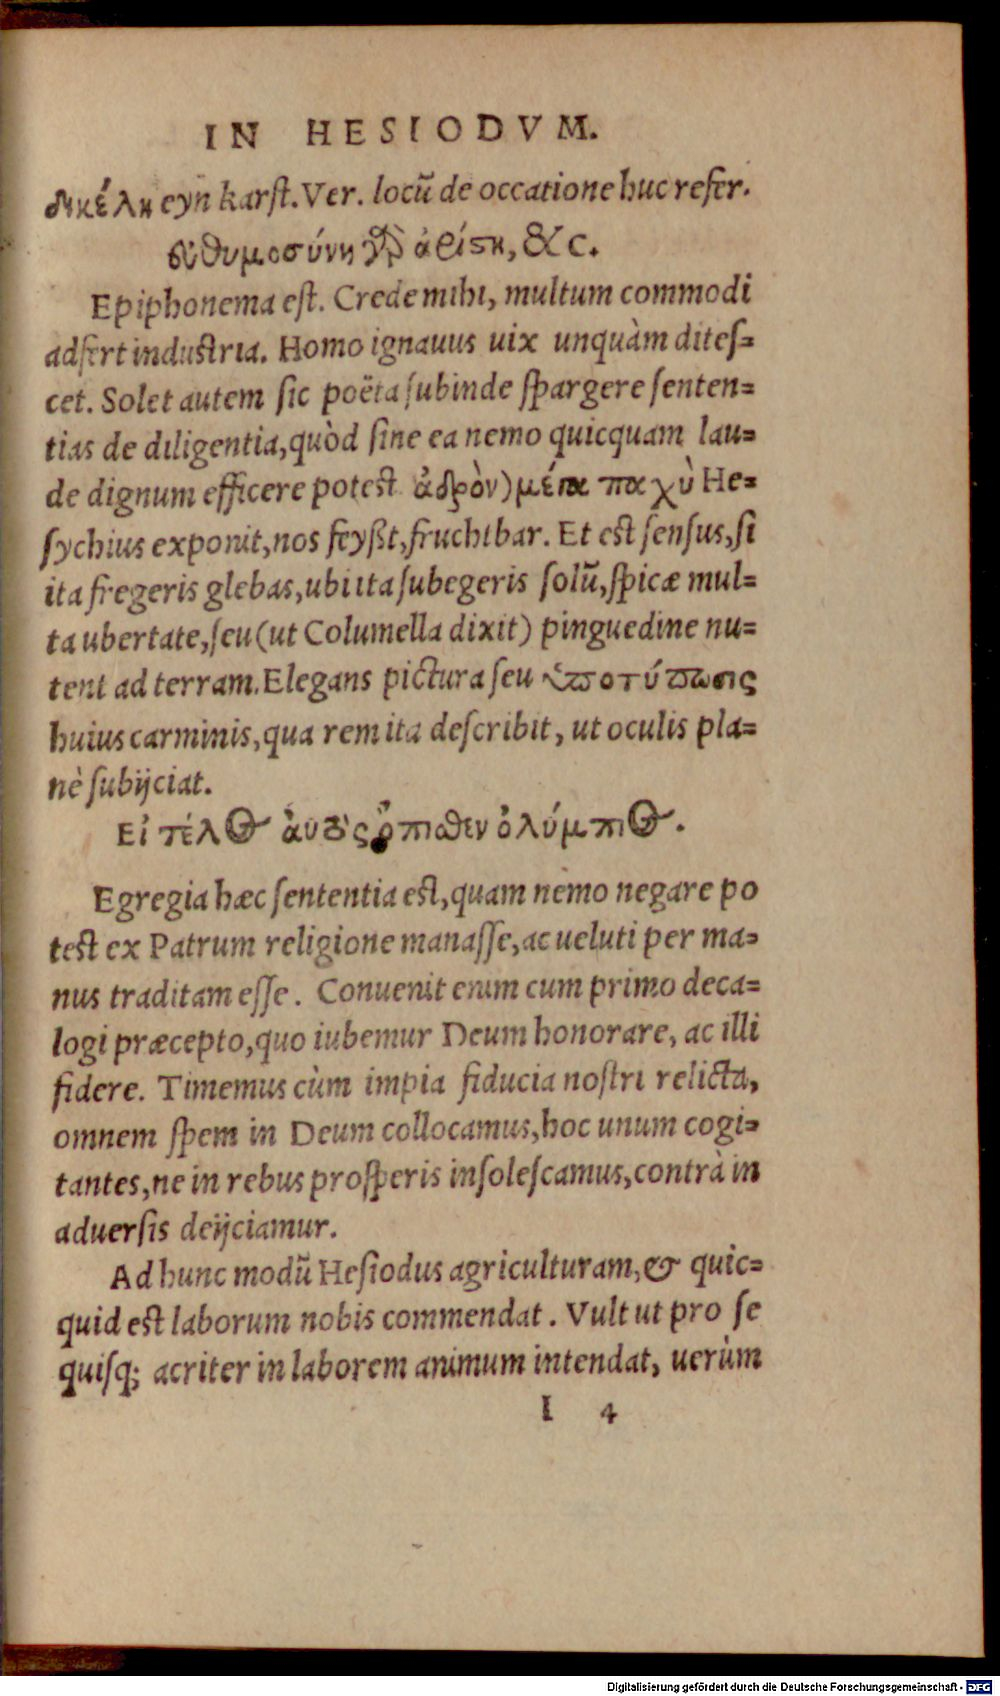 IN HESIODVM.
δικέλη eyn karst. Ver. locū de occatione huc refer.
εὐθυμοσύνη γὰρ ἀρίστη, &c.
Epiphonema est. Crede mihi, multum commodi
adfert industria. Homo ignauus uix unquàm dites=
cet. Solet autem sic poëta subinde spargere senten=
tias de diligentia, quòd sine ea nemo quicquam lau=
de dignum efficere potest ἁδρὸν) μέγα παχὺ He=
sychius exponit, nos feyßt, fruchtbar. Et est sensus, si
ita fregeris glebas, ubi ita subegeris solū, spicæ mul=
ta ubertate, seu (ut Columella dixit) pinguedine nu=
tent ad terram. Elegans pictura seu ὑποτύπωσις
huius carminis, qua rem ita describit, ut oculis pla=
nè subijciat.
Εἰ τέλος αὐτὸς ὄπιθεν ὀλύμπιος.
Egregia hæc sententia est, quam nemo negare po
test ex Patrum religione manasse, ac ueluti per ma=
nus traditam esse. Conuenit enim cum primo deca=
logi præcepto, quo iubemur Deum honorare, ac illi
fidere. Timemus cùm impia fiducia nostri relicta,
omnem spem in Deum collocamus, hoc unum cogi=
tantes, ne in rebus prosperis insolescamus, contrà in
aduersis deijciamur.
Ad hunc modū Hesiodus agriculturam, & quic=
quid est laborum nobis commendat. Vult ut pro se
quisq; acriter in laborem animum intendat, uerùm
I 4
Digitalisierung gefördert durch die Deutsche Forschungsgemeinschaft - DFG